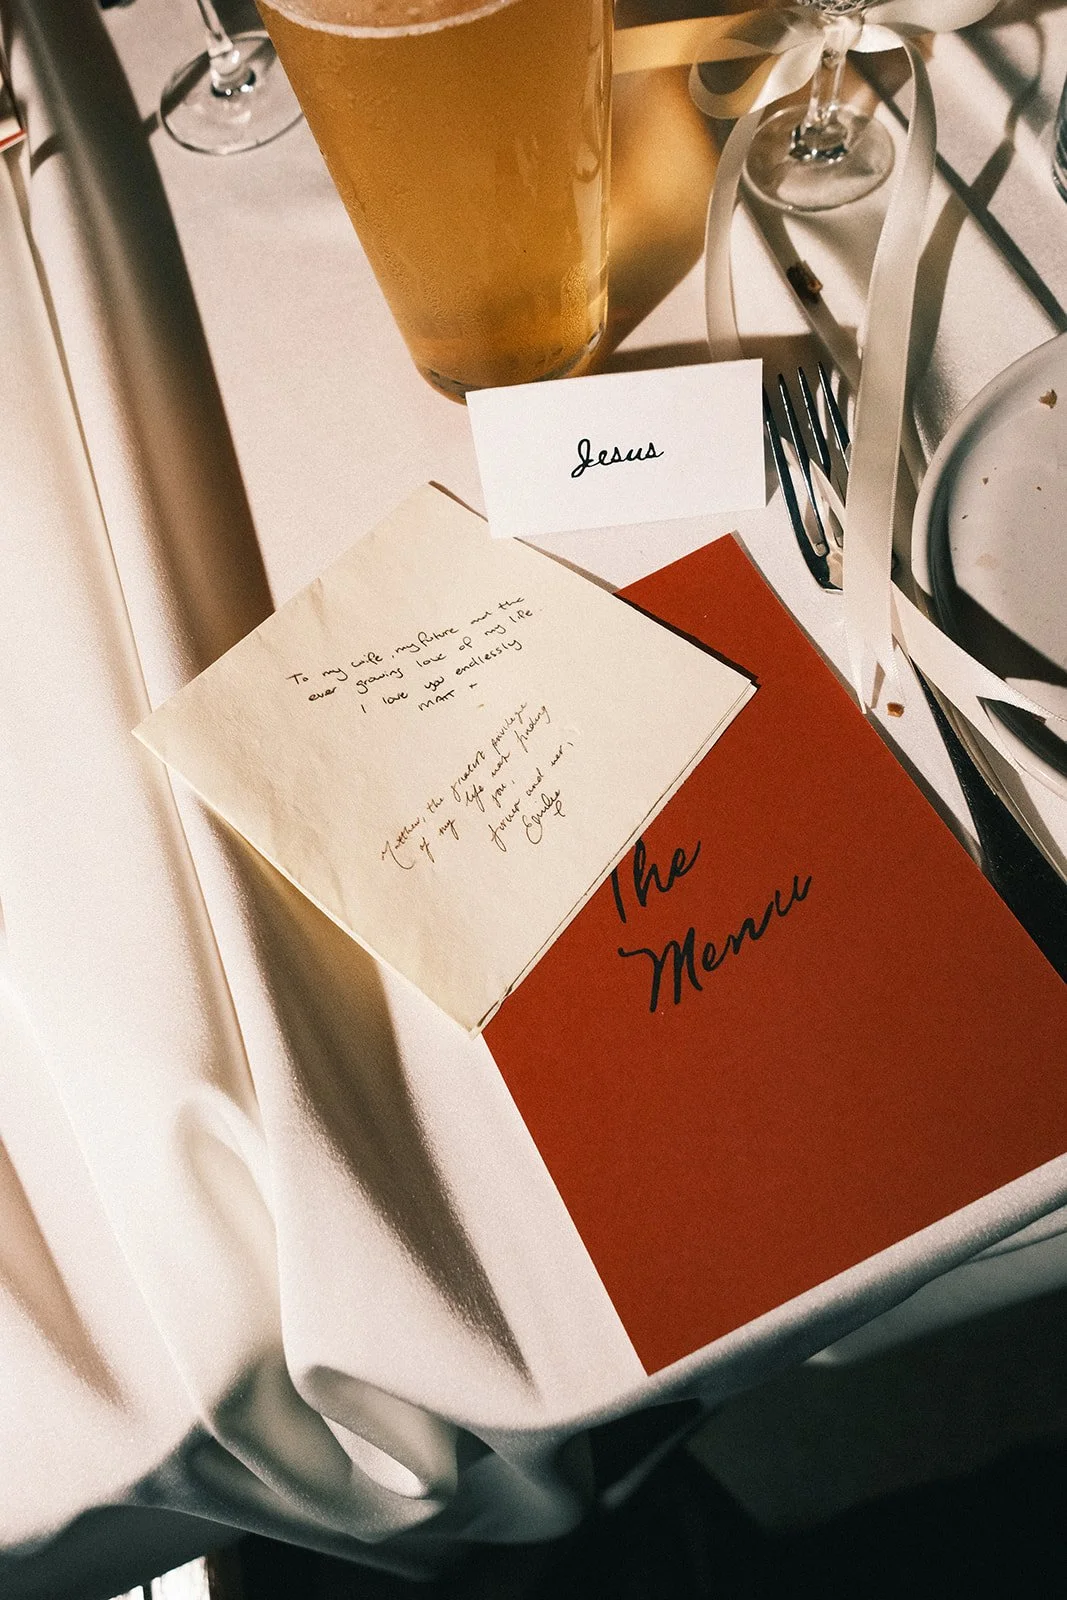 Jesus
To my wife, my future and the
ever growing love of my life.
I love you endlessly
MATT x
Matthew, the greatest privilege
of my life was finding
you,
forever and ever,
Emilie
The
Menu